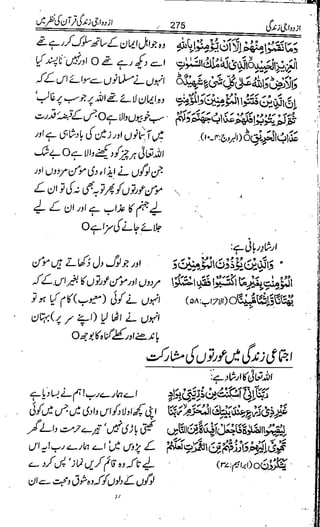 ازدواجی زندگی قرآن کی نظر میں
275
ازدواجی زندگی
وَمَا نَقَمُوْا مِنْهُمْ اِلَّآ اَنْ يُّؤْمِنُوْا بِاللّٰهِ
الْعَزِيْزِ الْحَمِيْدِ الَّذِيْ لَهٗ مُلْكُ السَّمٰوٰتِ
وَالْاَرْضِ وَاللّٰهُ عَلٰى كُلِّ شَيْءٍ شَهِيْدٌ
اِنَّ الَّذِيْنَ فَتَنُوا الْمُؤْمِنِيْنَ وَالْمُؤْمِنٰتِ
ثُمَّ لَمْ يَتُوْبُوْا فَلَهُمْ عَذَابُ جَهَنَّمَ وَلَهُمْ
عَذَابُ الْحَرِيْقِ O (البروج:
وہ جو اہل ایمان کے ساتھ سلوک کر رہے تھے
اسے دیکھ رہے تھے O اور نہیں ناپسند کیا
انہوں نے مسلمانوں سے سوائے اس کے کہ
وہ ایمان لائے تھے اللہ پر جو سب پر غالب
سب خوبیوں والا ہے O جس کے قبضہ قدرت
میں آسمانوں اور زمین کی بادشاہی ہے اور
اللہ تعالیٰ ہر چیز کو دیکھنے والا ہے O بے شک
جن لوگوں نے ایذاء دی مومن مردوں اور
مومن عورتوں کو پھر توبہ بھی نہ کی تو ان کے
لیے جہنم کا عذاب ہے اور ان کے لیے
جلائے جانے کی سزا ہے O
ارشاد ربانی ہے:
وَالَّذِيْنَ يُؤْذُوْنَ الْمُؤْمِنِيْنَ وَ
الْمُؤْمِنٰتِ بِغَيْرِ مَا اكْتَسَبُوْا فَقَدِ احْتَمَلُوْا
بُهْتَانًا وَّاِثْمًا مُّبِيْنًا O (الاحزاب: ۵۸)
اور جو لوگ دل دکھاتے ہیں مومن
مردوں اور مومن عورتوں کا بغیر اس کے کہ
انہوں نے کوئی (معیوب) کام کیا ہو تو
انہوں نے اٹھا لیا (اپنے سر پر) بہتان
باندھنے اور کھلے گناہ کا بوجھ O
اجتماعی زندگی میں عورتوں کی مشارکت
اللہ تعالیٰ کا ارشاد ہے:
رَبَّنَآ اِنِّيْٓ اَسْكَنْتُ مِنْ ذُرِّيَّتِيْ بِوَادٍ
غَيْرِ ذِيْ زَرْعٍ عِنْدَ بَيْتِكَ الْمُحَرَّمِ رَبَّنَا
لِيُقِيْمُوا الصَّلٰوةَ فَاجْعَلْ اَفْئِدَةً مِّنَ النَّاسِ
تَهْوِيْٓ اِلَيْهِمْ وَارْزُقْهُمْ مِّنَ الثَّمَرٰتِ لَعَلَّهُمْ
يَشْكُرُوْنَ O (ابراہیم: ۳۷)
اے ہمارے رب! ہم نے بسا دیا ہے
اپنی کچھ اولاد کو اس وادی میں جس میں کوئی
کھیتی باڑی نہیں، تیرے حرمت والے گھر
کے پڑوس میں اے ہمارے رب! یہ اس
لیے تاکہ وہ قائم کریں نماز، پس کر دے
لوگوں کے دلوں کو کہ وہ شوق و محبت سے ان